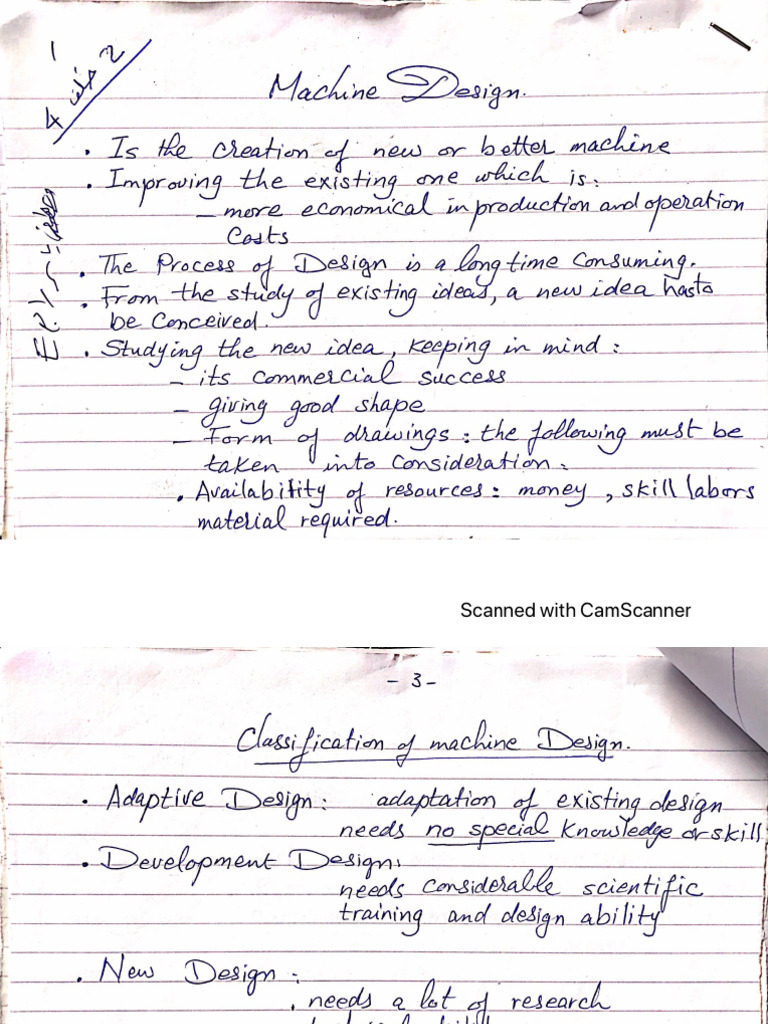 1
2 خلف 4
Machine Design.
. Is the creation of new or better machine
. Improving the existing one which is:
– more economical in production and operation
Costs
. The Process of Design is a long time consuming.
. From the study of existing ideas, a new idea has to
be conceived.
. Studying the new idea, keeping in mind:
– its commercial success
– giving good shape
– Form of drawings: the following must be
taken into consideration:
. Availability of resources: money, skill labors
material required.
Scanned with CamScanner
- 3 -
Classification of machine Design.
. Adaptive Design: adaptation of existing design
needs no special knowledge or skill
. Development Design:
needs considerable scientific
training and design ability
. New Design:
. needs a lot of research